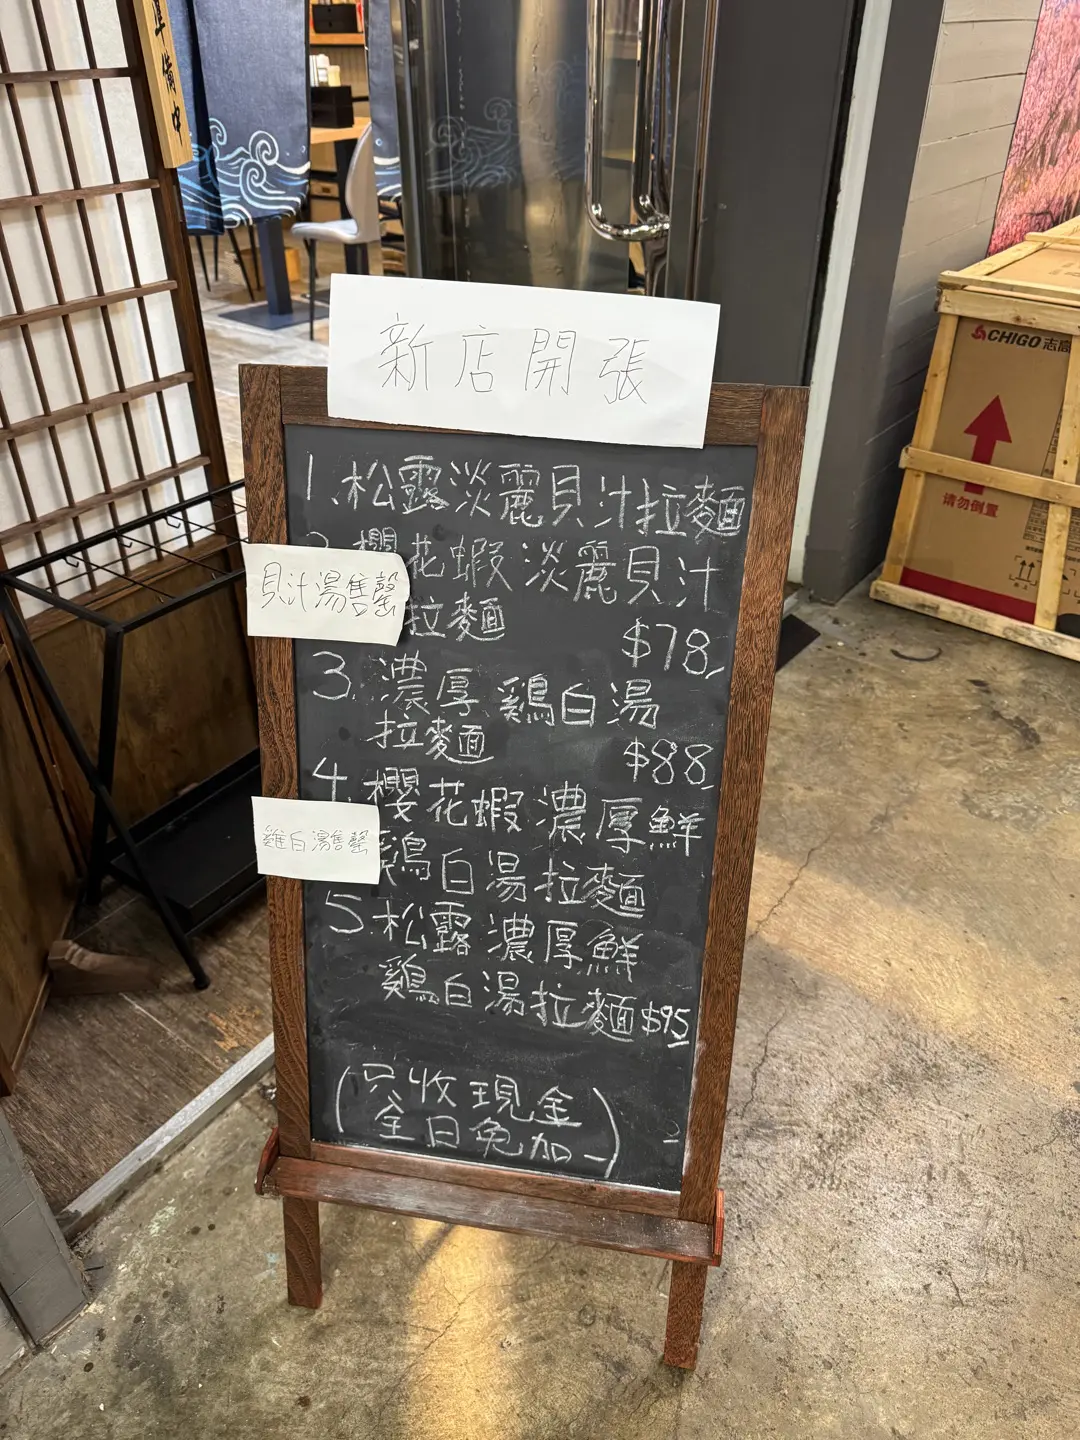 準備中
新店開張
1.松露淡麗貝汁拉麵
2.櫻花蝦淡麗貝汁
拉麵 $78
貝汁湯售罄
3.濃厚鷄白湯
拉麵 $88
4.櫻花蝦濃厚鮮
鷄白湯拉麵
雞白湯售罄
5.松露濃厚鮮
鷄白湯拉麵$95
(只收現金
全日免加一)
CHIGO 志高
请勿倒置